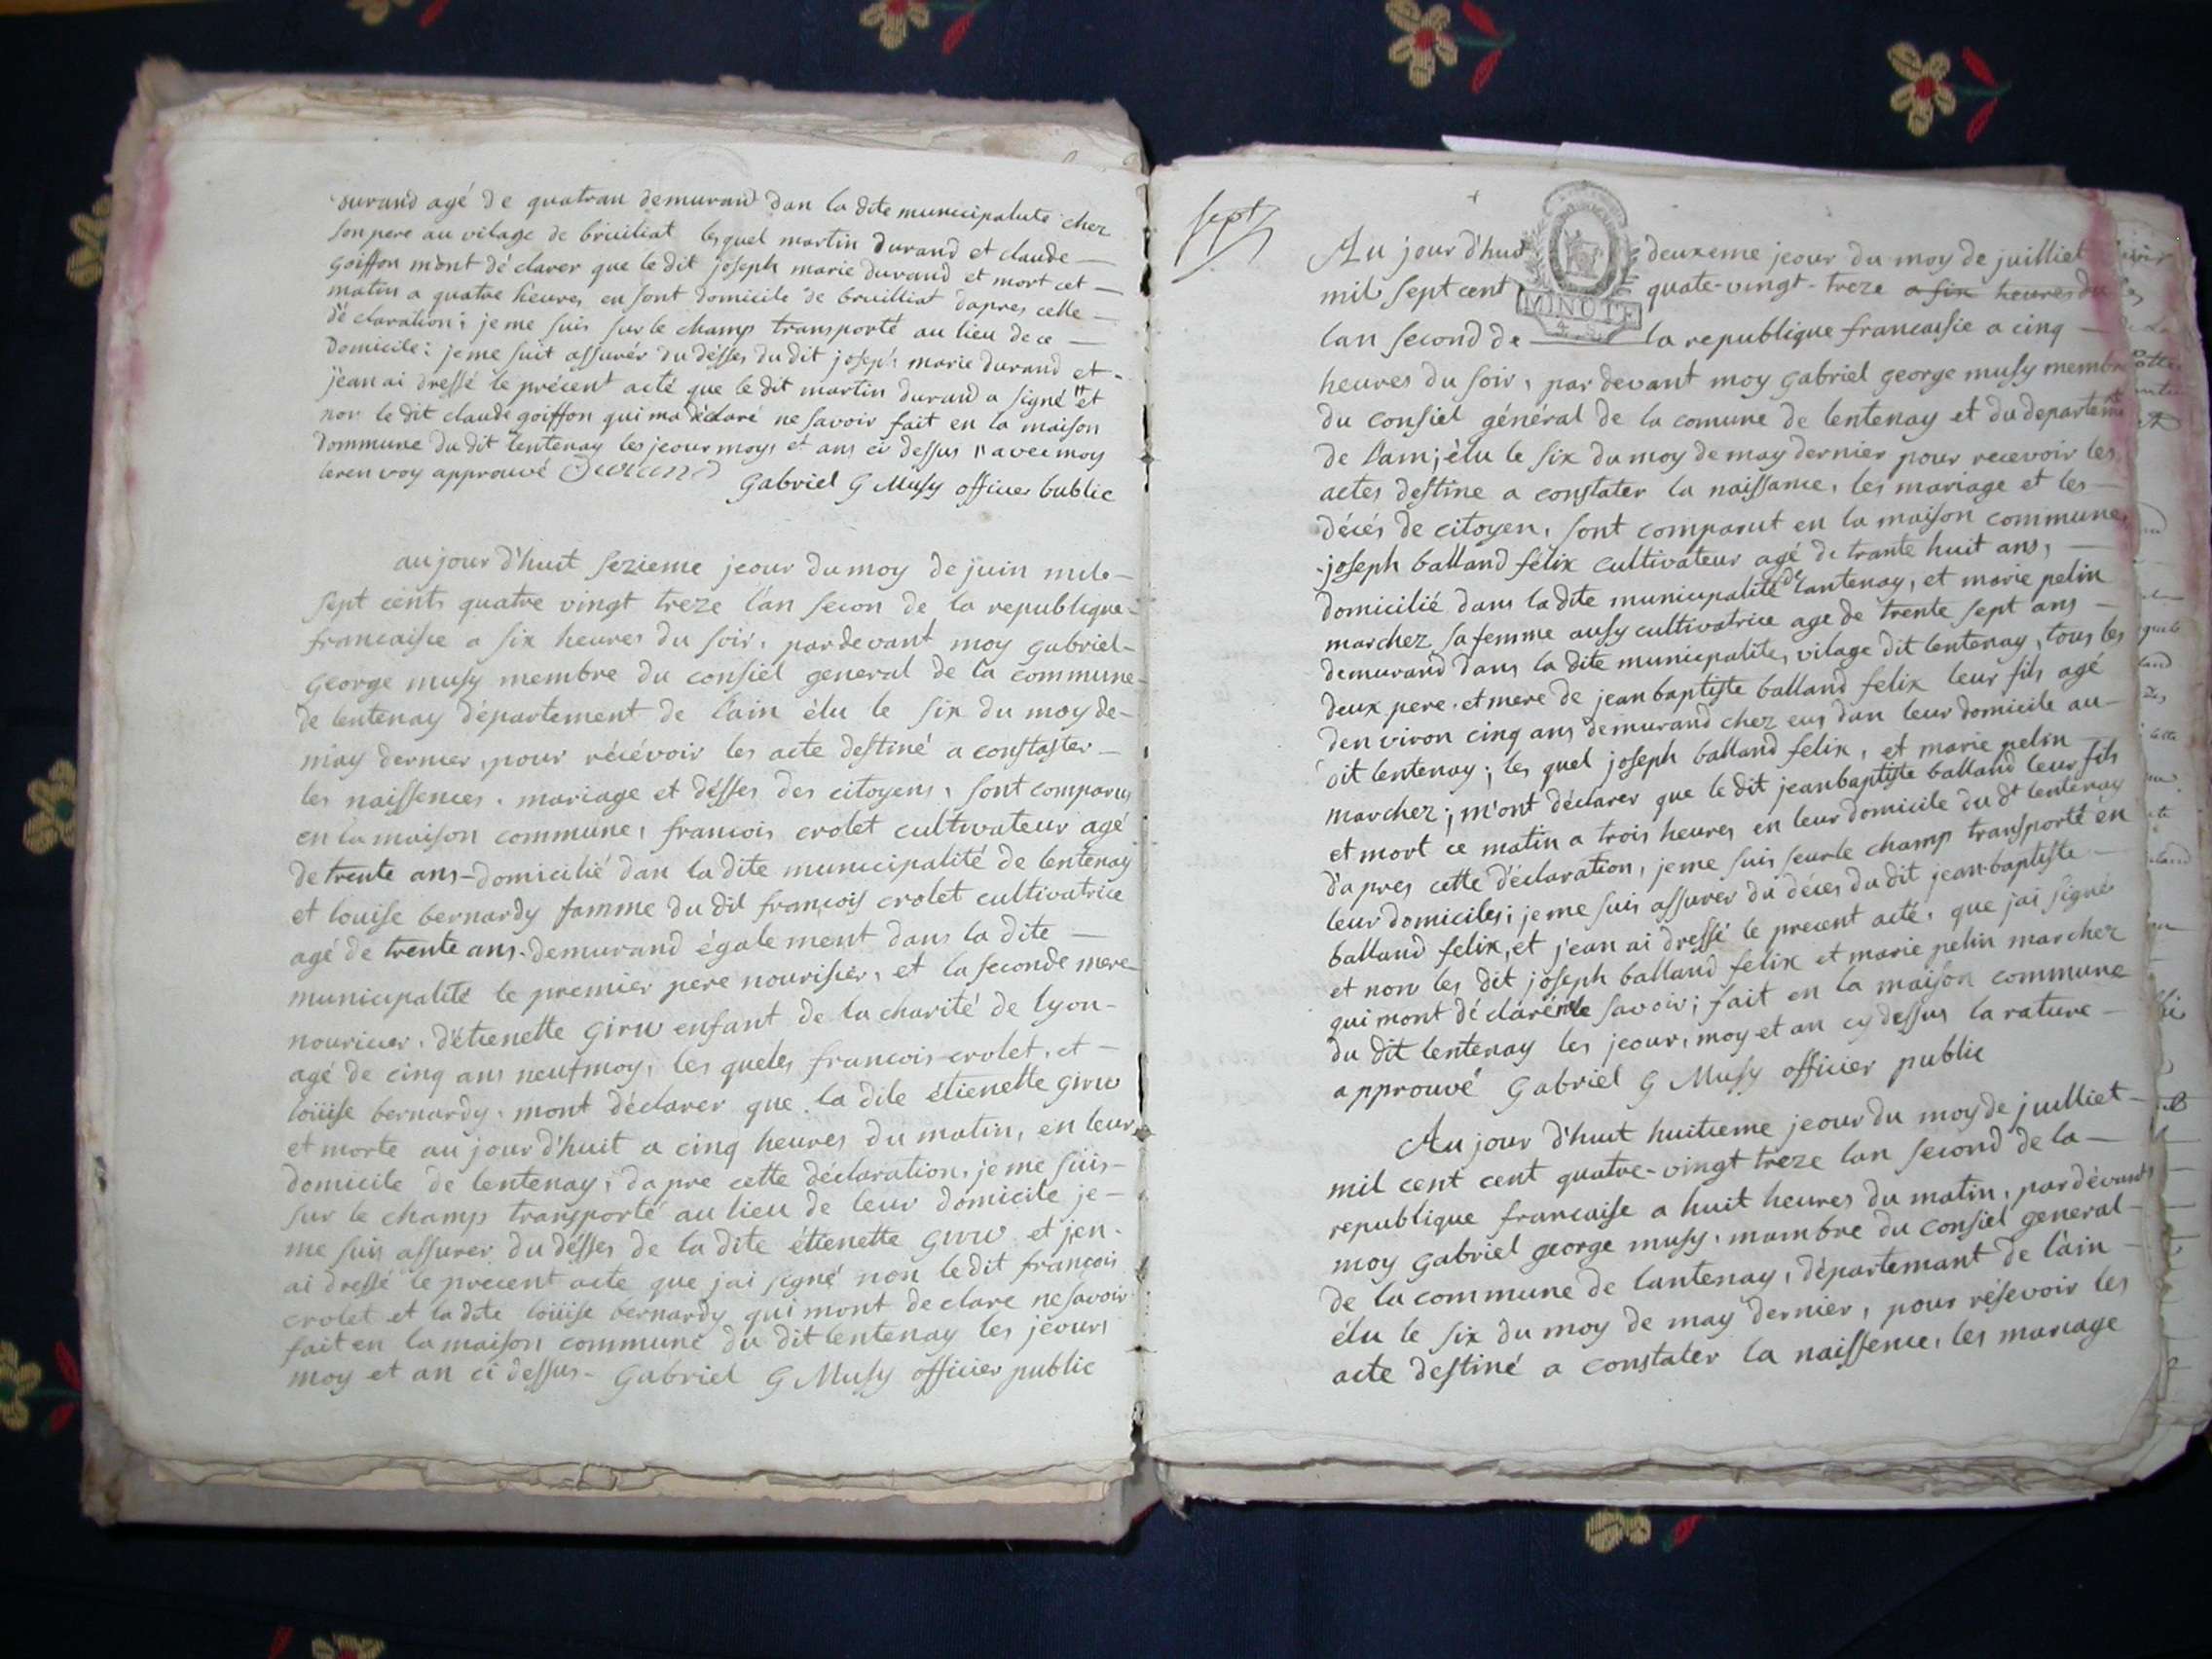 durand agé de quatran demurand dan la dite municipalité chez
son pere au vilage de bruiliat lesquel martin durand et claude
goiffon mont dé clarer que le dit joseph marie durand et mort cet
matin a quatre heures en sont domicile de bruilliat dapres celle
dé claration; je me suis sur le champ transporté au lieu de ce
domicile; je me suit assurér du désses du dit joseph marie durand et
jean ai dressé le précent acté que le dit martin durand a signé " et
non le dit claude goiffon qui ma déclaré ne savoir fait en la maison
dommune du dit lentenay les jeour moys et ans ci dessus " avec moy
leren voy approuvé Durand
Gabriel G Musy officier bublic
aujour d'huit sezieme jeour du moy de juin mile
sept cents quatre vingt treze l'an secon de la republique
francaisce a six heures du soir, pardevant moy gabriel
george musy membre du consiel general de la commune
de lentenay département de l'ain élu le six du moy de
may dernier, pour récévoir les acte destiné a constaster
les naissences, mariage et désses des citoyens, sont comparus
en la maison commune, francois crolet cultivateur agé
de trente ans domicilié dan la dite municipalité de lentenay
et louise bernardy famme du dit françois crolet cultivatrice
agé de trente ans demurand également dans la dite
municipalité le premier pere nourisier, et la seconde mere
nouricier, d'étienette girw enfant de la charité de lyon
agé de cinq ans neuf moy, les queles francois crolet, et
loüise bernardy, mont déclarer que la dite étienette girw
et morte au jour d'huit a cinq heures du matin, en leur
domicile de lentenay, dapre cette déclaration, je me suis
sur le champ transporté au lieu de leur domicile je
me suis assurer du désses de la dite étienette girw et jen
ai dressé le precent acte que jai signé non le dit françois
crolet et la dite loüise bernardy qui mont declare ne savoir
fait en la maison commune du dit lentenay les jeours
moy et an ci dessus. Gabriel G Musy officier public
sept
Au jour d'huit deuxeme jeour du moy de juilliet
mil sept cent quate-vingt-treze a six heures du
MINUTE
lan second de la republique francaisie a cinq
heures du soir, par devant moy gabriel george musy membre
du consiel général de la comune de lentenay et du departemt
de l'am; élu le six du moy de may dernier pour recevoir les
actes destine a constater la naissance, les mariage et les
décés de citoyen, sont comparut en la maison commune,
joseph balland félix cultivateur agé de trante huit ans,
domicilié dans la dite municipalité de lantenay, et marie pelin
marchez sa femme ausy cultivatrice age de trente sept ans
demurand dans la dite municipalite, vilage dit lentenay, tous les
deux pere et mere de jean baptiste balland felix leur fils agé
den viron cinq ans demurand chez eus dan leur domicile au
dit lentenay; les quel joseph balland felix, et marie pelin
marchez; m'ont déclarer que le dit jeanbaptiste balland leur fils
et mort ce matin a trois heures en leur domicile du dt lentenay
d'apres cette déclaration, je me suis seurle champ transporté en
leur domiciles; je me suis assurer du déces du dit jean-baptiste
balland felix, et j'ean ai dressé le precent acté, que jai signé
et non les dit joseph balland felix et marie pelin marchez
qui mont dé claré ne savoir; fait en la maison commune
du dit lentenay les jeour, moy et an cy dessus la rature
approuvé Gabriel G Musy officier public
Au jour d'huit huitieme jeour du moy de juilliet
mil cent cent quatre-vingt treze lan second de la
republique francaise a huit heures du matin, pardévant
moy gabriel george musy, mambre du consiel general
de la commune de lantenay, départemant de l'ain
élu le six du moy de may dernier, pour résevoir les
acte destiné a constater la naissence, les mariage